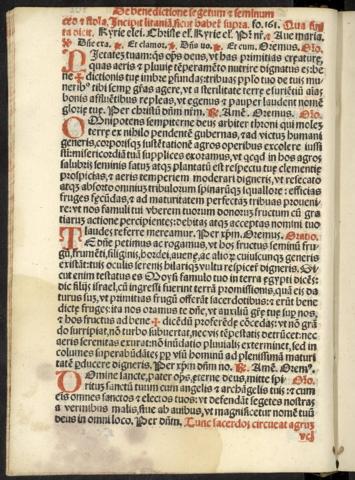 De benedictione segetum & seminum
ceo & stola. Incipit litaniã sicut habet supra. fo. 161. Qua fini
ta dicit. Kyrie elei. Christe el. Kyrie el. Pr̃ nr̃. Aue maria.
Dñe exa. ℟. Et clamor. Dñs uo. ℟. Et cum. Oremus. Or̃o.
Pietatez tuamq̃s op̃s deus, vt has primitias creaturę,
quas aeris & pluuię tẽperamẽto nutrire dignatus es: be-
ne ✠ dictionis tuę imbre pfundas: tribuas pp̃lo tuo de tuis mu
nerib᷒ tibi semp grãs agere, vt a sterilitate terrę esuriẽtiũ aĩas
bonis affluẽtibus repleas, vt egenus & pauper laudent nomẽ
glorię tuę. Per christũ dñm nr̃m. ℟. Amẽ. Oremus. Or̃o.
Omnipotens sempiterne deus arbiter throni qui molez
terrę ex nihilo pendentẽ gubernas, rad victus humani
generis, corporis iustẽtationẽ agros operibus excolere iussi
sti: misericordiã tuã supplices exoramus, vt qcqd in hos agros
salubris seminis satus atq̃ plantatũ est respectu tuę clementię
prospicias, & aeris temperiem moderari digneris, vt resecato
atq̃ absorto omniuz tribulorum spinarũq̃ squallore: efficias
fruges fęcũdas, & ad maturitatem perfectaz tribuas prouenï-
re: vt nos famuli tui vberem tuorum donoruz fructum cũ gra
tiaruz actione percipientes: debitas atq̃ acceptas nomini tuo
laudes referre mereamur. Per xp̃m. Oremus. Oratio.
Te dñe petimus ac rogamus, vt hos fructus seminũ fru-
gũ, frumẽti, siliginis, hordei, auenę, ac alior᷒ cuiuscunq̃ generis
existãt: tuis oculis serenis hilariq̃ vultu respicer̃ digneris. Si-
cut enim testatus es Moysi famulo tuo in terra ęgypti dicẽs:
dic filijs israel, cũ ingressi fuerint terrã promissionis, quã eis da
turus suz, vt primitias frugũ offerãt sacerdotibus: & erũt bene
dictę fruges: ita nos oramus te dñe, vt auxiliũ gr̃ę tuę sup nos,
& hos fructus ad bene ✠ dicẽdũ proferẽde cõcedas: vt nõ grã
do surripiat, nõ turbo subuertat, nec vis tẽpestatis detrũcet: nec
aeris serenitas exurat: nõ inũdatio pluuialis exterminet, sed in
columes superabũdãtes ppr vsũ hominũ ad plenissimã maturi
tatẽ pducere digneris. Per xp̃m dñm no. ℟. Amẽ. Orem᷒.
Domine sancte, pater op̃s, eterne deus, mitte spi- Or̃o.
ritus sanctũ tuum cum angelis & archãgelis tuis: & cum
eis omnes sanctos & electos tuos: vt defendãt segetes nostras
a vermibus malis, siue ab auibus, vt magnificetur nomẽ tuũ
deus in omni loco. Per dñm. Tunc sacerdos circueat agruz
vel